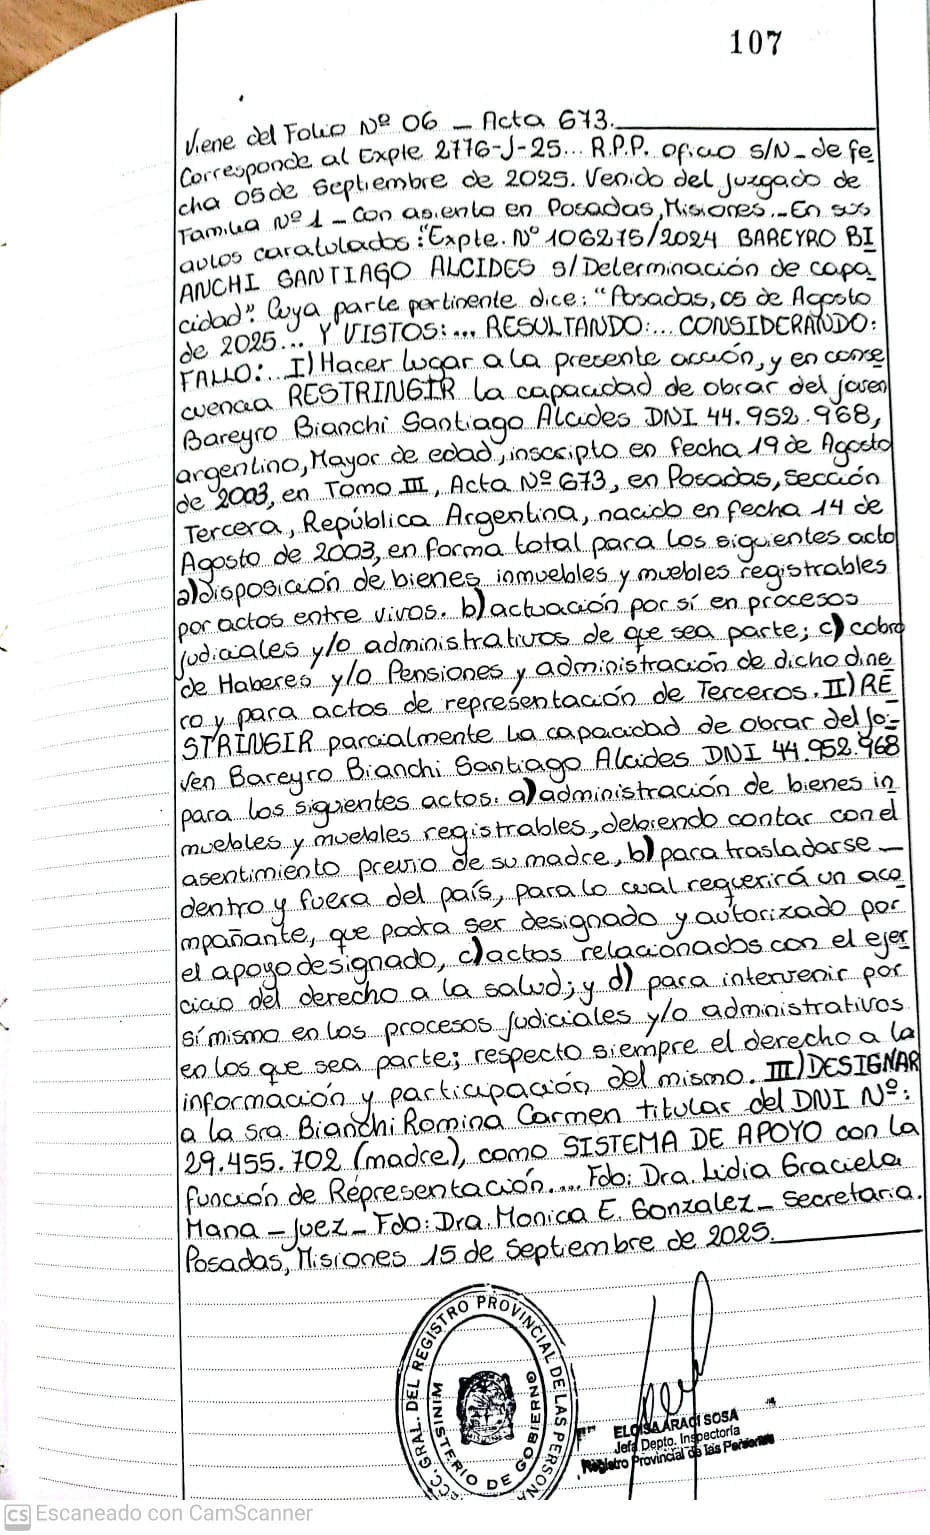 107
Viene del Folio Nº 06 - Acta 673.
Corresponde al Expte 2776-J-25... R.P.P. oficio S/N - de fe
cha 05 de Septiembre de 2025. Venido del Juzgado de
Familia Nº 1 - Con asiento en Posadas, Misiones.- En sus
autos caratulados: "Expte. Nº 106275/2024 BAREYRO BI
ANCHI SANTIAGO ALCIDES s/Determinación de capa_
cidad". Cuya parte pertinente dice: "Posadas, 05 de Agosto
de 2025... Y VISTOS:... RESULTANDO:... CONSIDERANDO:
FALLO: I) Hacer lugar a la presente acción, y en conse
cuencia RESTRINGIR la capacidad de obrar del joven
Bareyro Bianchi Santiago Alcides DNI 44.952.968,
argentino, Mayor de edad, inscripto en fecha 19 de Agosto
de 2003, en Tomo III, Acta Nº 673, en Posadas, Sección
Tercera, República Argentina, nacido en fecha 14 de
Agosto de 2003, en forma total para los siguientes acto
a) disposición de bienes inmuebles y muebles registrables
por actos entre vivos. b) actuación por sí en procesos
judiciales y/o administrativos de que sea parte; c) cobro
de Haberes y/o Pensiones y administración de dicho dine
ro y para actos de representación de Terceros. II) RE
STRINGIR parcialmente la capacidad de obrar del Jo-
ven Bareyro Bianchi Santiago Alcides DNI 44.952.968
para los siguientes actos: a) administración de bienes in
muebles y muebles registrables, debiendo contar con el
asentimiento previo de su madre, b) para trasladarse -
dentro y fuera del país, para lo cual requerirá un aco
mpañante, que podra ser designado y autorizado por
el apoyo designado, c) actos relacionados con el ejer
cicio del derecho a la salud; y d) para intervenir por
sí mismo en los procesos judiciales y/o administrativos
en los que sea parte; respecto siempre el derecho a la
información y participación del mismo. III) DESIGNAR
a la sra. Bianchi Romina Carmen titular del DNI Nº:
29.455.702 (madre), como SISTEMA DE APOYO con la
función de Representación.... Fdo: Dra. Lidia Graciela
Mana - Juez - Fdo: Dra. Monica E. Gonzalez - Secretaria.
Posadas, Misiones 15 de Septiembre de 2025.
CC. GRAL. DEL REGISTRO PROVINCIAL DE LAS PERSONA
MINISTERIO DE GOBIERNO
ELOISA ARACI SOSA
Jefa Depto. Inspectoría
Registro Provincial de las Personas
CS Escaneado con CamScanner